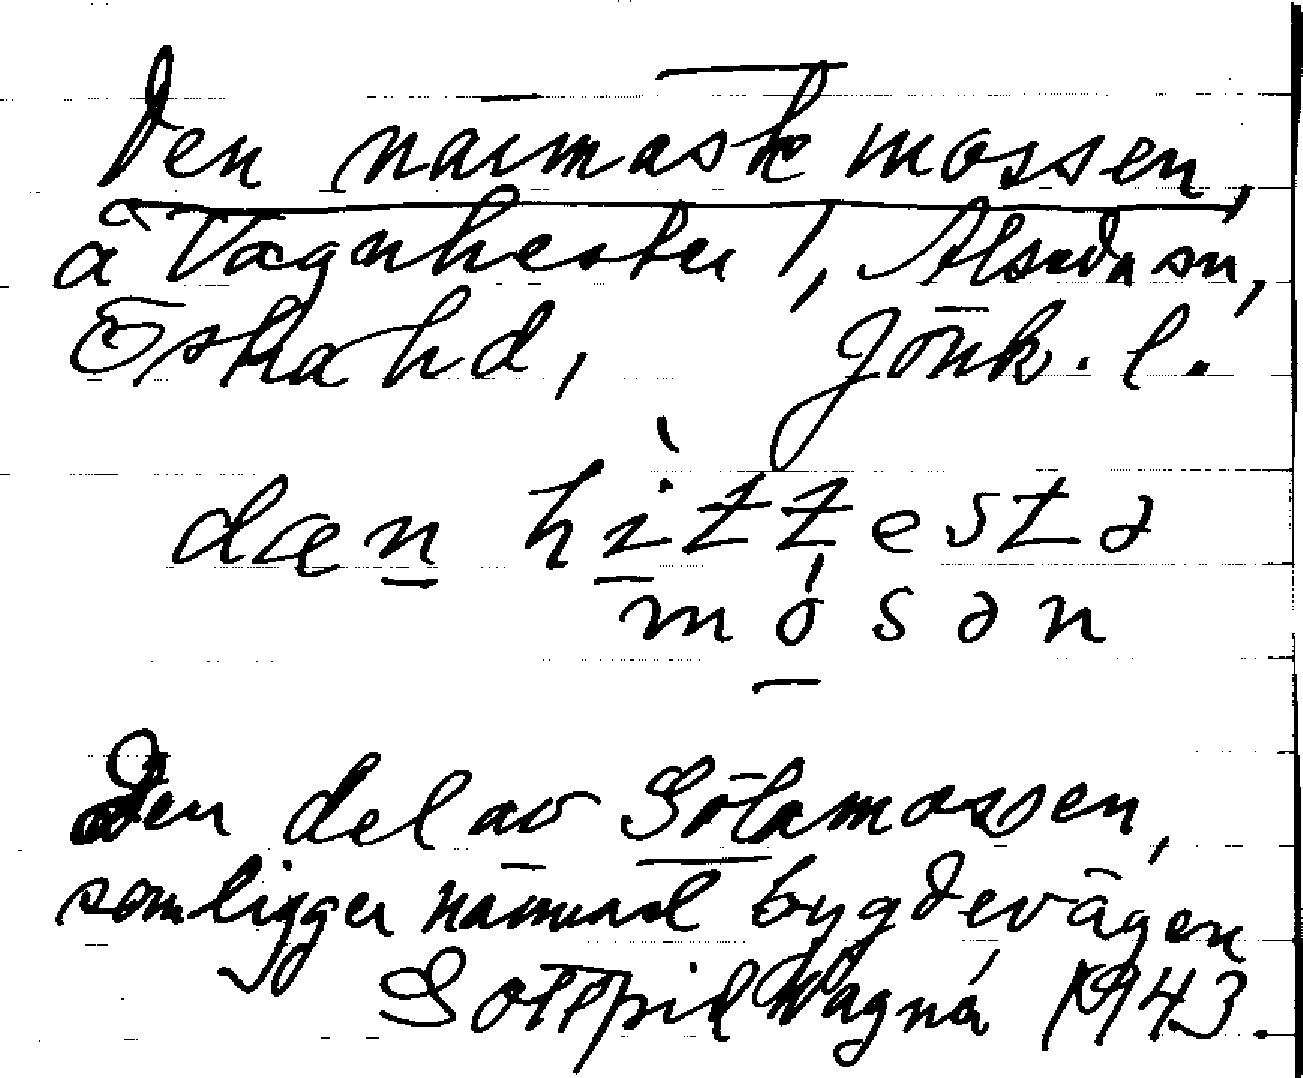 Den närmaste mossen,
å Vagnhester 1, Alseda sn,
Östra hd, Jönk. l.
dæn hittesta
mósən
Den del av Sötamossen,
som ligger närmast bygdevägen
Gottfrid Wagné 1943.